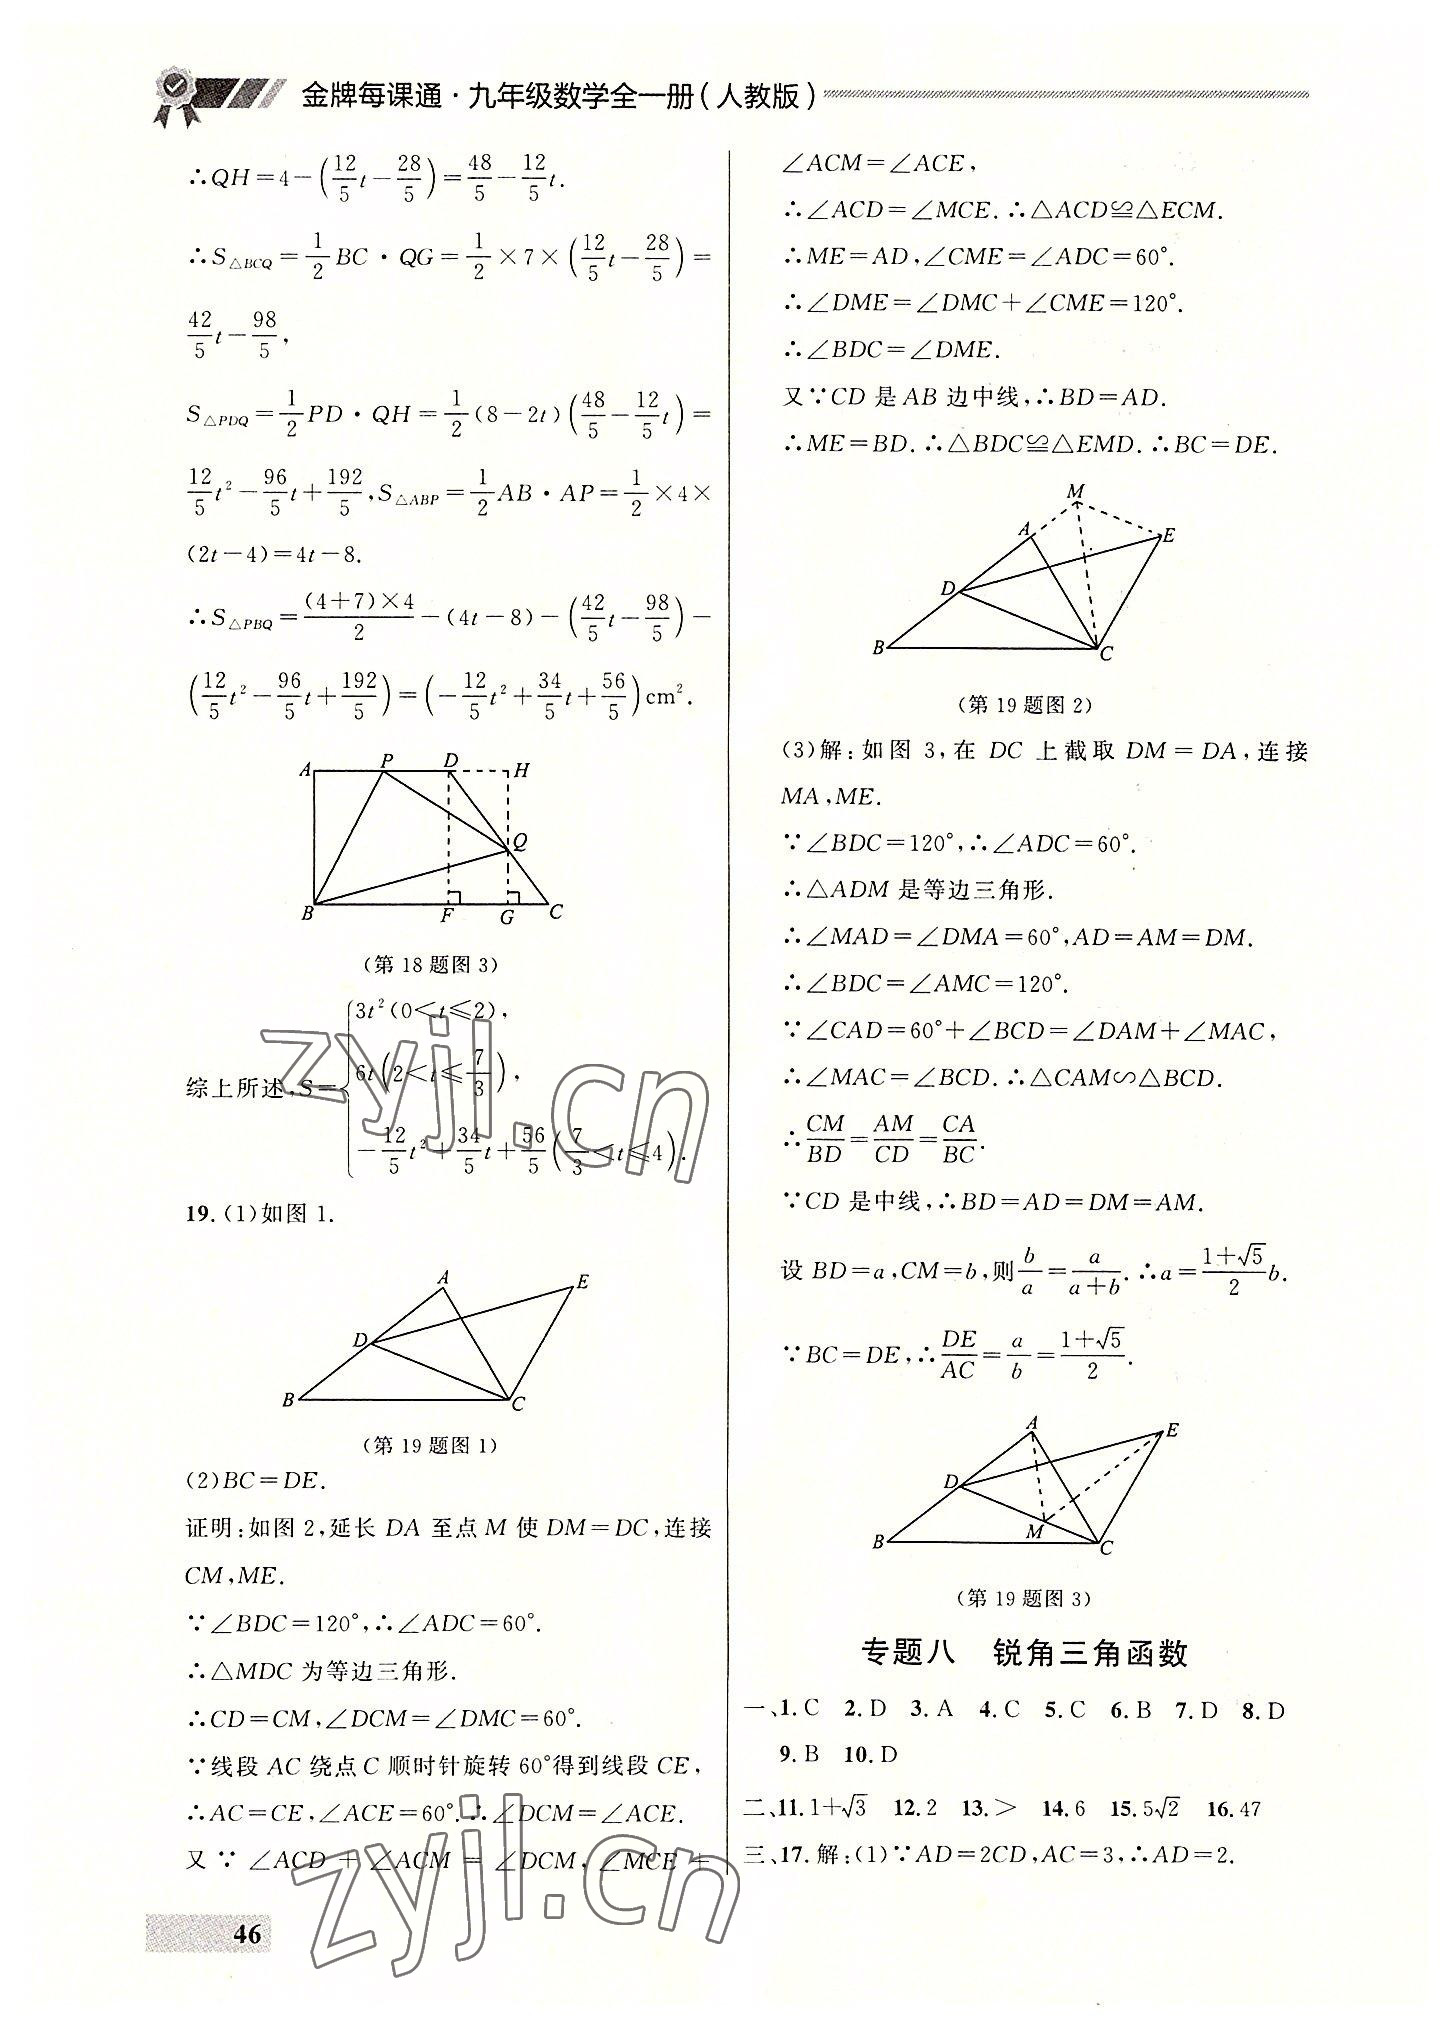 金牌每课通·九年级数学全一册(人教版)
∴QH=4-(12/5 t-28/5)=48/5-12/5 t.
∴S△BCQ=1/2 BC·QG=1/2×7×(12/5 t-28/5)=
42/5 t-98/5,
S△PDQ=1/2 PD·QH=1/2(8-2t)(48/5-12/5 t)=
12/5 t²-96/5 t+192/5,S△ABP=1/2 AB·AP=1/2×4×
(2t-4)=4t-8.
∴S△PBQ=(4+7)×4/2-(4t-8)-(42/5 t-98/5)-
(12/5 t²-96/5 t+192/5)=(-12/5 t²+34/5 t+56/5)cm².
A P D H
Q
B F G C
(第18题图3)
3t²(0<t≤2),
综上所述,S={6t(2<t≤7/3),
-12/5 t²+34/5 t+56/5(7/3<t≤4).
19.(1)如图1.
A E
D
B C
(第19题图1)
(2)BC=DE.
证明:如图2,延长DA至点M使DM=DC,连接
CM,ME.
∵∠BDC=120°,∴∠ADC=60°.
∴△MDC为等边三角形.
∴CD=CM,∠DCM=∠DMC=60°.
∵线段AC绕点C顺时针旋转60°得到线段CE,
∴AC=CE,∠ACE=60°.∴∠DCM=∠ACE.
又∵∠ACD+∠ACM=∠DCM,∠MCE+
46
∠ACM=∠ACE,
∴∠ACD=∠MCE.∴△ACD≌△ECM.
∴ME=AD,∠CME=∠ADC=60°.
∴∠DME=∠DMC+∠CME=120°.
∴∠BDC=∠DME.
又∵CD是AB边中线,∴BD=AD.
∴ME=BD.∴△BDC≌△EMD.∴BC=DE.
M
A E
D
B C
(第19题图2)
(3)解:如图3,在DC上截取DM=DA,连接
MA,ME.
∵∠BDC=120°,∴∠ADC=60°.
∴△ADM是等边三角形.
∴∠MAD=∠DMA=60°,AD=AM=DM.
∴∠BDC=∠AMC=120°.
∵∠CAD=60°+∠BCD=∠DAM+∠MAC,
∴∠MAC=∠BCD.∴△CAM∽△BCD.
∴CM/BD=AM/CD=CA/BC.
∵CD是中线,∴BD=AD=DM=AM.
设BD=a,CM=b,则b/a=a/(a+b).∴a=(1+√5)/2 b.
∵BC=DE,∴DE/AC=a/b=(1+√5)/2.
A E
D
M
B C
(第19题图3)
专题八 锐角三角函数
一、1.C 2.D 3.A 4.C 5.C 6.B 7.D 8.D
9.B 10.D
二、11.1+√3 12.2 13.> 14.6 15.5√2 16.47
三、17.解:(1)∵AD=2CD,AC=3,∴AD=2.
zyjl.cn
zyjl.cn